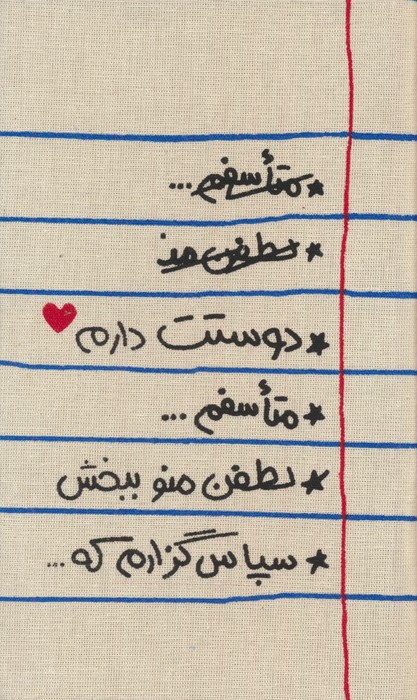 ★ متأسفم...
★ لطفن من
★ دوستت دارم
★ متأسفم ...
★ لطفن منو ببخش
★ سپاس گزارم که ...